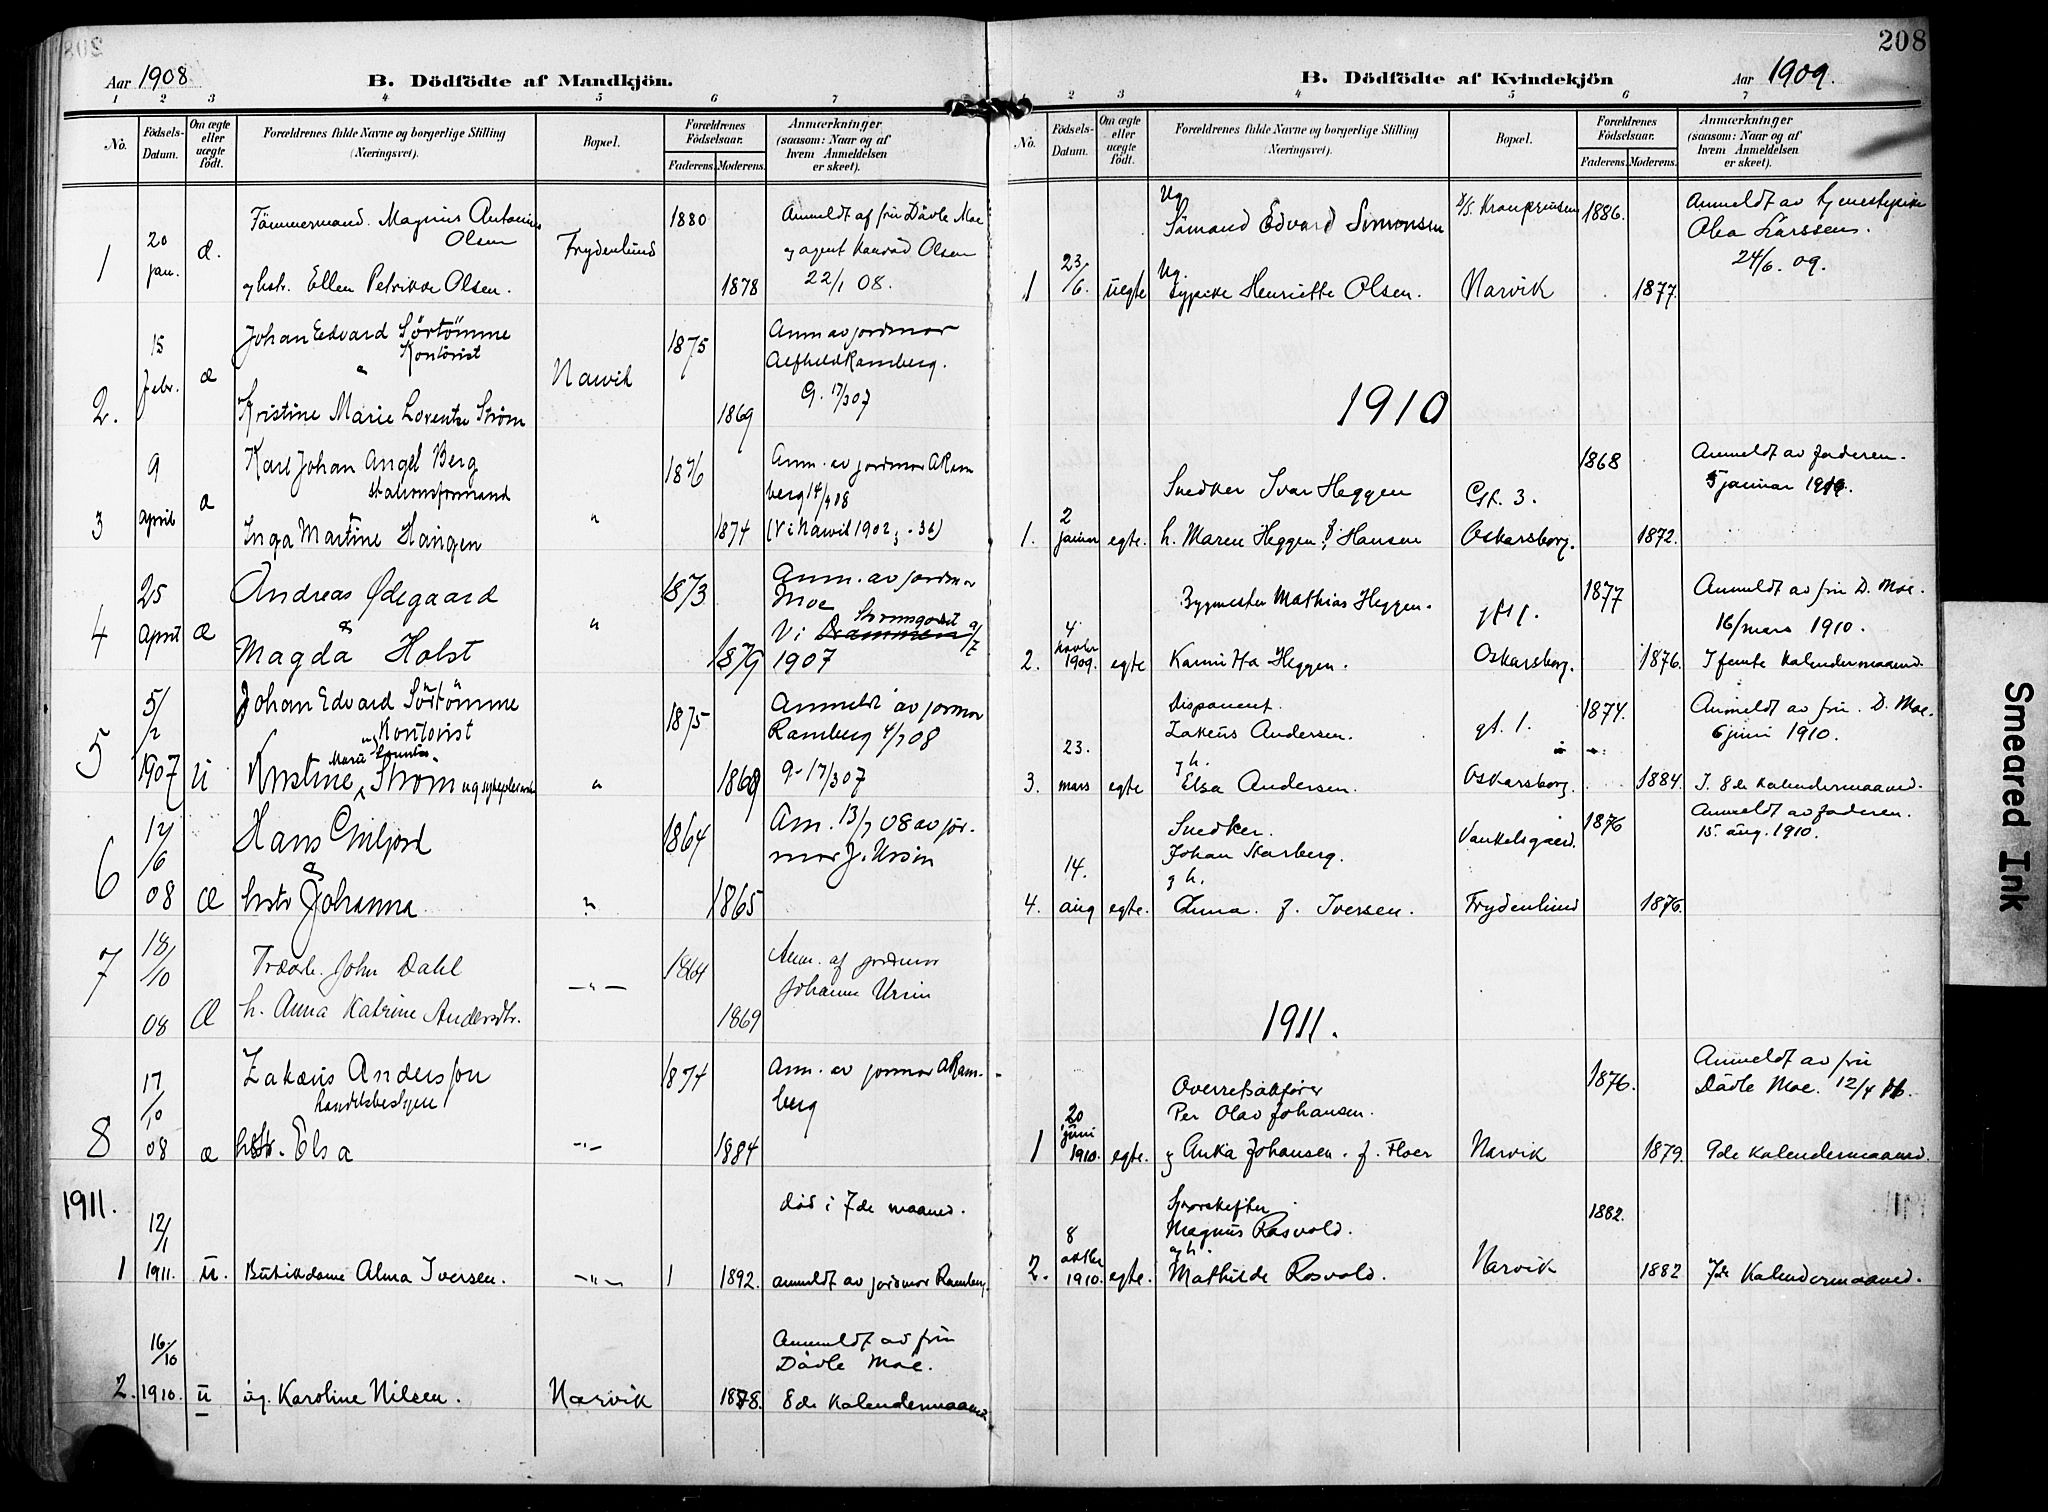 208
Aar 1908
B. Dödfödte af Mandkjön.
1 2 3 4 5 6 7
No.
Födsels-Datum.
Om ægte eller uægte födt.
Forældrenes fulde Navne og borgerlige Stilling (Næringsvei).
Bopæl.
Forældrenes Födselsaar.
Faderens. Moderens.
Anmærkninger (saasom: Naar og af hvem Anmeldelsen er skeet).
Tömmermand. Magnus Antonius 1880 Anmeldt af fru Dåvle Moe
20 Olsen
1 jan. æ. Frydenlund og agent Konrad Olsen
og hstr. Ellen Petrikke Olsen. 1878 22/1 08.
15 Johan Edvard Sörtömme 1875 Anm av jordmor
Kontorist Alfhild Ramberg.
2. febr. æ & Narvik G. 17/3 07
Kristine Marie Lorentze Strøm 1869
9 Karl Johan Angel Berg 1876 Anm. av jordmor A Ram
Stationsformand berg 14/4 08
3 april æ " "
Inga Martine Haugen 1874 (Vi Narvik 1902, . 36)
25 Andreas Ødegaard 1873 Anm. av jordmor
Moe
4 April æ & " Strømsgodset 9/7
Magda Holst 1879 Vi Drammen
1907
5/2 Johan Edvard Sörtömme 1875 Anmeldt av jormor
og Kontorist Ramberg 4/7 08
5 Marie Lorentze
1907 U Kristine Strøm " 1869 G. 17/3 07
12/6 Hans 1864 Am. 13/7 08 av jor-
6 & mor J. Ursin
08 Æ hstr Johanna " 1865
7 18/10 Træarb. John Dahl 1864 Anm. af jordmor
-"- Johanne Ursin
08 Æ h. Anna Katrine Andersdtr. 1869
17/10 Zakæus Andersson 1874 Anm. av jormor A Ram-
Handelsbestyrer berg
8 08 æ hstr. Elsa -"- 1884
1911.
12/1 död i 7de maaned.
1 1911. u. Butikdame Alma Iversen. -"- 1 1892. anmeldt av jordmor Ramberg.
16/10 Anmeldt av fru
Dåvle Moe.
2. 1910. u ug. Karoline Nilsen. Narvik 1878. 8de Kalendermaaned
208
B. Dödfödte af Kvindekjön
Aar 1909.
1 2 3 4 5 6 7
No.
Födsels-Datum.
Om ægte eller uægte födt.
Forældrenes fulde Navne og borgerlige Stilling (Næringsvei).
Bopæl.
Forældrenes Födselsaar.
Faderens. Moderens.
Anmærkninger (saasom: Naar og af hvem Anmeldelsen er skeet).
Ug. D/S. Kronprinsen 1886. Anmeldt av tjenestepike
Sömand Edvard Simonsen Olea Larssen.
23/6 Ug. 24/6. 09.
1 uegte typike Henriette Olsen. Narvik 1877.
1910
1868 Anmeldt av faderen.
Snedker Ivar Heggen Gt. 3. 5 januar 1910.
2
1. januar egte. h. Maren Heggen f. Hansen Oskarsborg. 1872.
Bygmester Mathias Heggen. gt 1. 1877 Anmeldt av fru D. Moe.
4 16/mars 1910.
novbr
2. 1909. egte Karin Heggen. Oskarsborg. 1876. I femte Kalendermaaned.
Disponent. 1874. Anmeldt av fru. D. Moe.
Zakeus Andersen. gt. 1. 6 juni 1910.
23. g h.
3. mars egte Elsa Andersen. Oskarsborg. 1884. I. 8de Kalendermaaned.
Snedker. Vankelsgaard. 1876 Anmeldt av faderen.
Johan Skarberg. 15. aug. 1910.
14. g h.
4. aug egte. Anna. f. Iversen. Frydenlund 1876.
1911.
Anmeldt av fru
Overretsakfører 1876. Dåvle Moe. 12/4 11.
20 Per Olav Johansen.
juni
1 1910. egte. g Anka Johansen. f. Floer Narvik 1879. 9de Kalendermaaned.
Sporskifter 1882.
8 Magnus Rosvold.
oktbr og h.
2. 1910. egte. Mathilde Rosvold. Narvik 1882 7de Kalendermaaned.
Smeared Ink